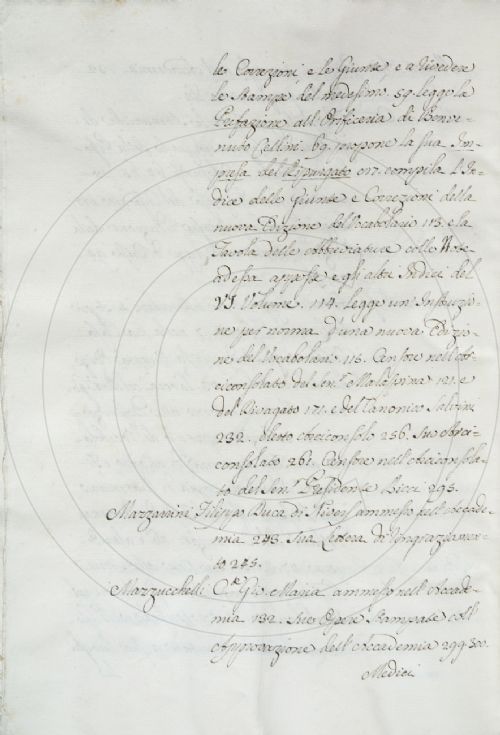 le Correzioni e le Giunte e a rivedere
le Stampe del medesimo. 59. legge la
Prefazione all'Orificeria di Benve-
nuto Cellini. 69. propone la sua Im-
presa del Ripurgato 07. compila l'In-
dice delle Giunte e Correzioni della
nuova Edizione del Vocabolari 113. e la
Tavola delle abbreviature colle Note
ad essa apposte e gli altri Indici del
VI. Volume. 114. legge un' Instruzio-
ne per norma d'una nuova Edizio-
ne del Vocabolari 115. Censore nell'Ar-
ciconsolato del Sen.r Malaspina 121. e
del Rivagato 171. e del Canonico Salvini
232. eletto Arciconsolo 256. Suo Arci-
consolato 261. Censore nell'Arciconsola-
to del Sen.r Presidente Ricci 295.
Mazzarini Filippo Duca di Nivers ammesso nell'Accade-
mia 243. Sua Lettera di Ringraziamen-
to 245.
Mazzuchelli C.te Gio. Maria ammesso nell'Accade-
mia 132. Sue Opere Stampate coll'
Approvazione dell'Accademia 299. 300.
Medici